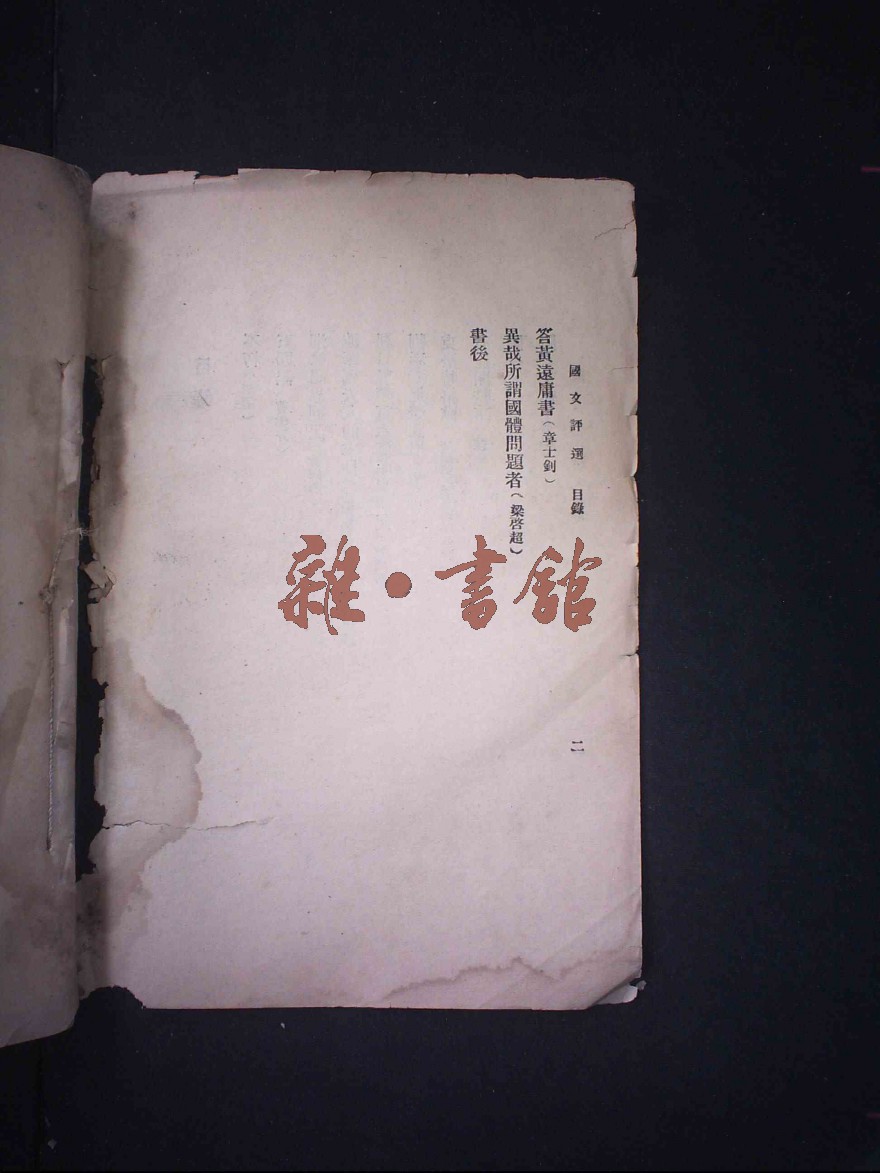 國文評選 目錄 二
答黃遠庸書（章士釗）
異哉所謂國體問題者（梁啓超）
書後
雜·書館